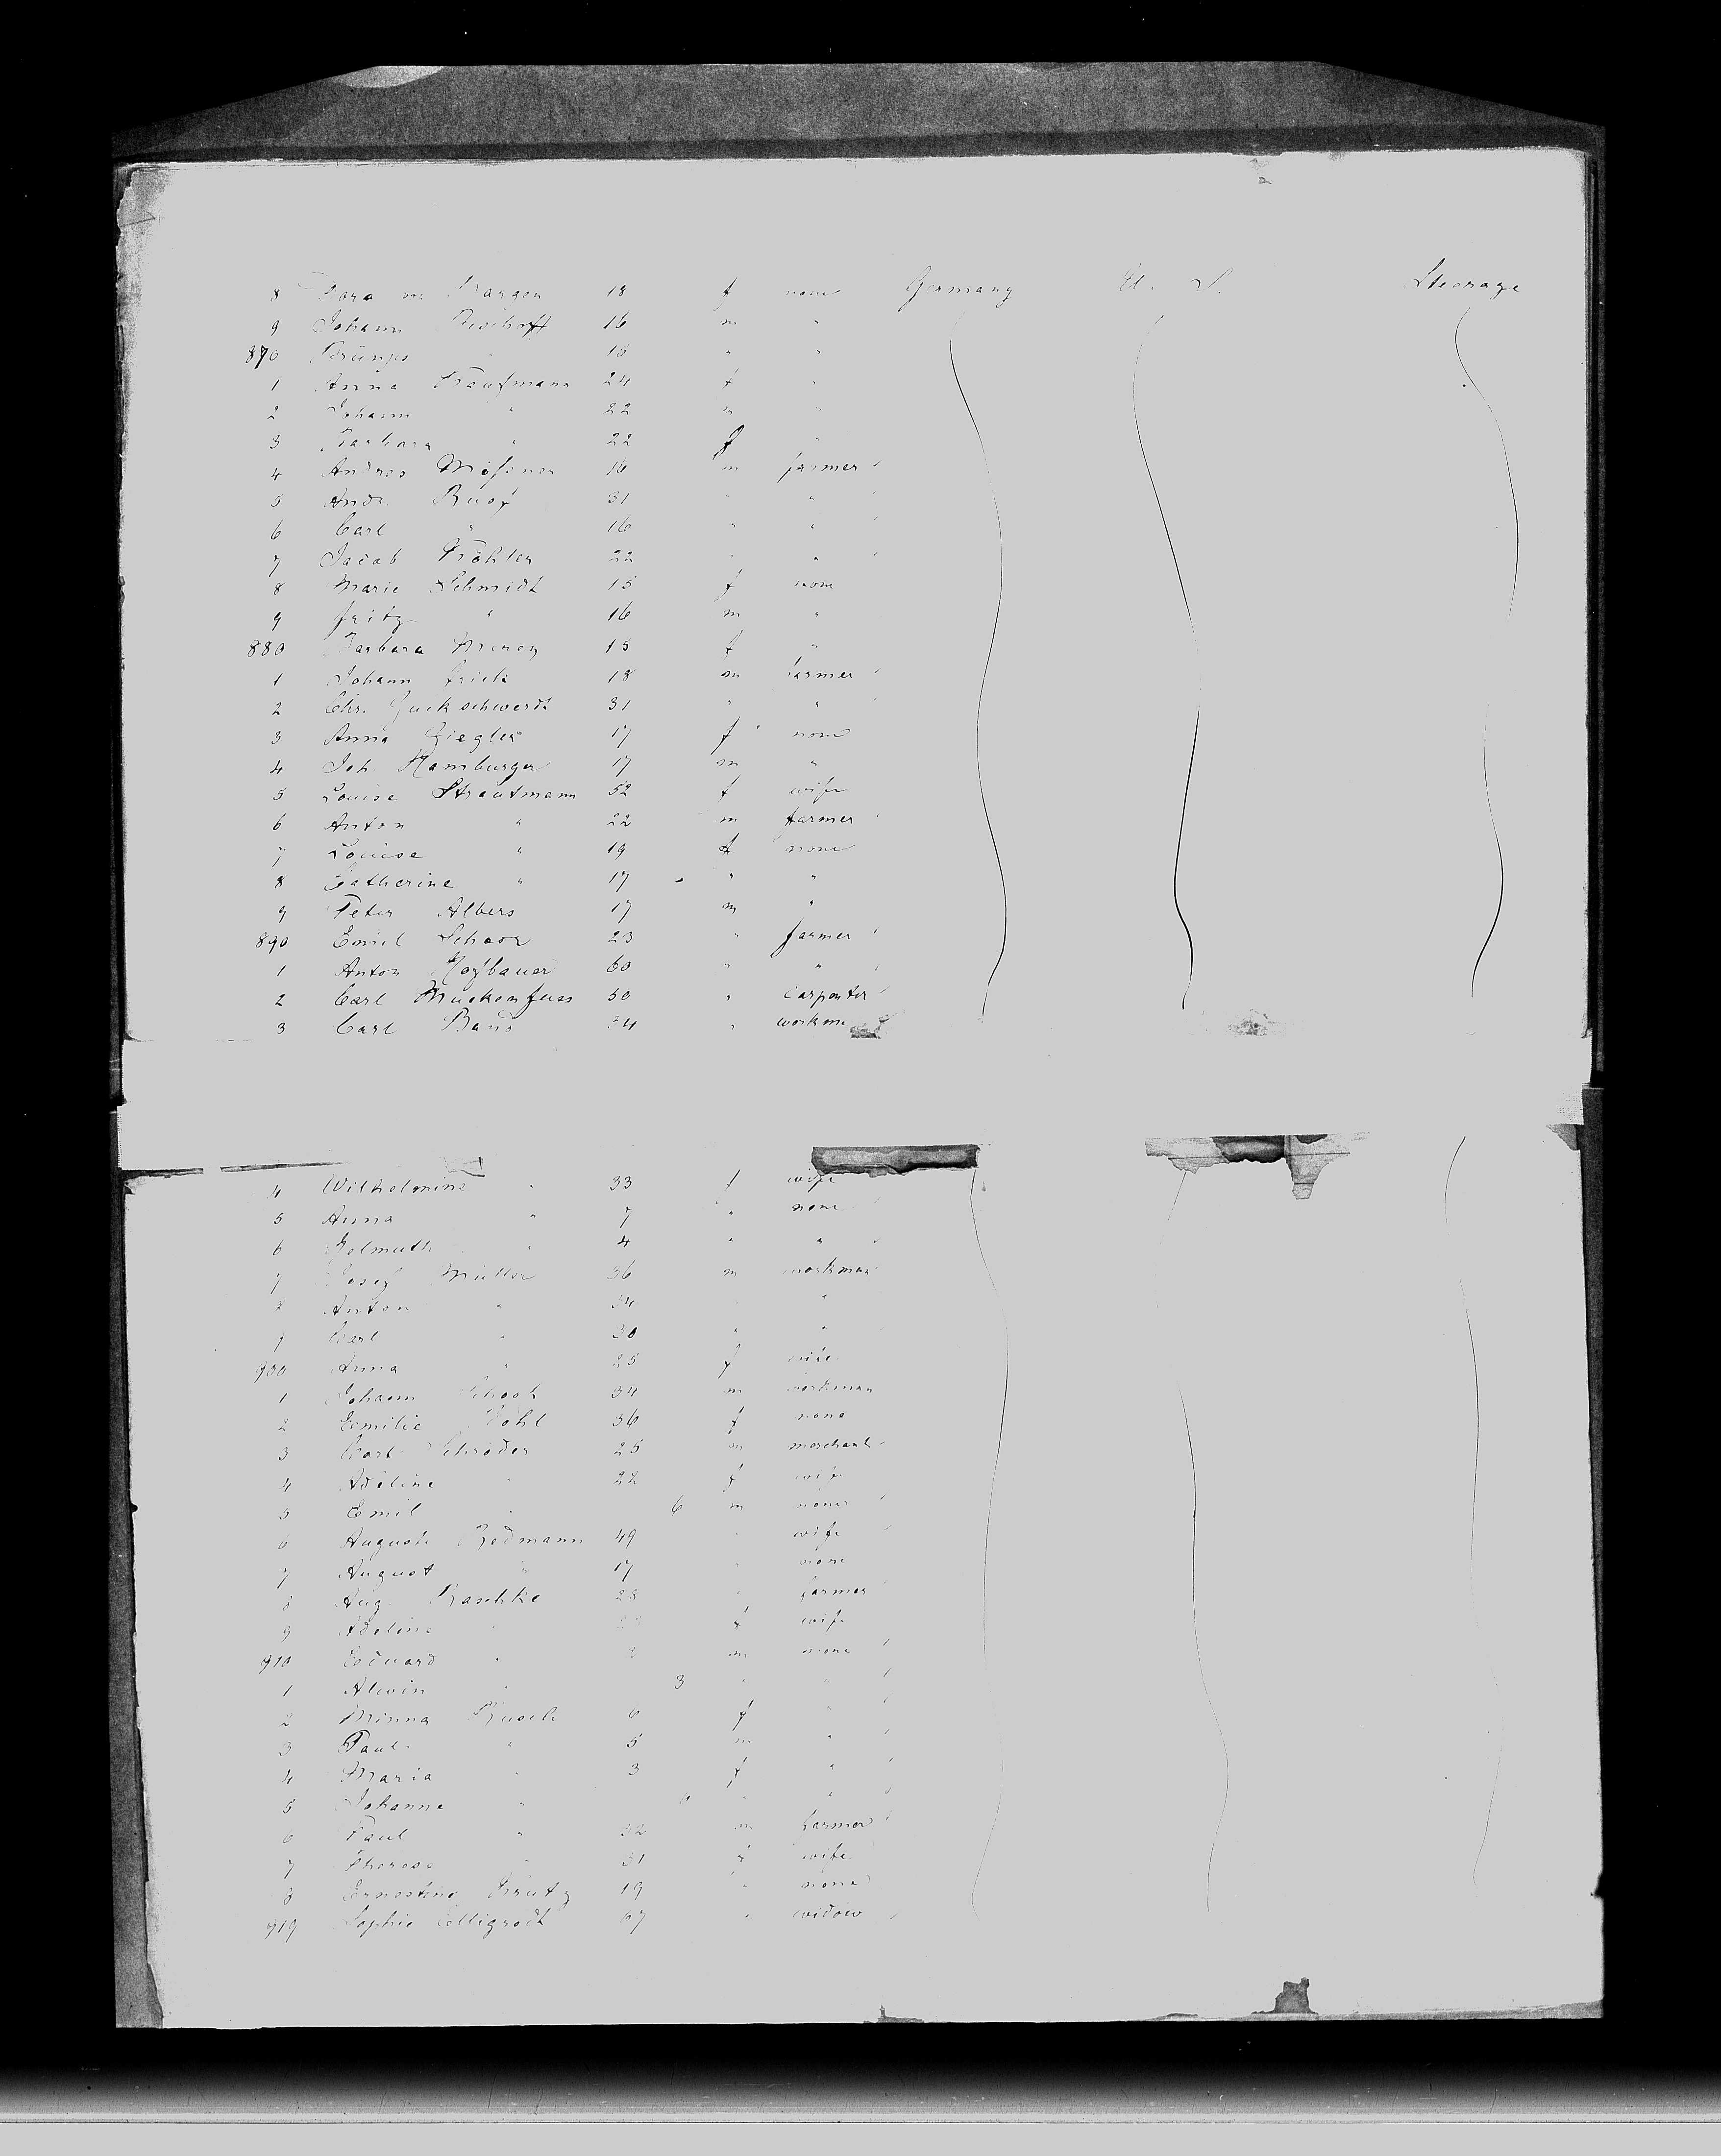 8 Dora von Bargen 18 f none Germany U. S. Steerage
9 Johann Bischoff 16 m "
870 " 18 " "
1 Anna Kaufmann 24 f "
2 Johann " 22 m "
3 Barbara " 22 f "
4 Andres 16 m farmer
5 Andr. Ruof 31 " "
6 Carl " 16 " "
7 Jacob Köhler 22 " "
8 Marie Schmidt 15 f none
9 Fritz " 16 m "
880 Barbara 15 f "
1 Johann Frick 18 m farmer
2 Chr. Guckschwerdt 31 " "
3 Anna Ziegler 17 f none
4 Joh. Hamburger 17 m "
5 Louise Strautmann 52 f wife
6 Anton " 22 m farmer
7 Louise " 19 f none
8 Catherine " 17 " "
9 Peter Albers 17 m "
890 Emil Schoor 23 " farmer
1 Anton Hofbauer 60 " "
2 Carl Muckenfuss 50 " carpenter
3 Carl Band 34 " workma
4 Wilhelmine " 33 f wife
5 Anna " 7 " none
6 Helmuth " 4 " "
7 Josef Müller 36 m workman
8 Anton " 34 " "
9 Carl " 30 " "
900 Anna " 25 f wife
1 Johann Schook 34 m workman
2 Emilie Pohl 36 f none
3 Carl Schröder 25 m merchant
4 Adeline " 22 f wife
5 Emil " 6 m none
6 Auguste Redmann 49 " wife
7 August " 17 " none
8 Aug. Raschke 28 " farmer
9 Adeline " f wife
910 Eduard " m none
1 Alwin " 3 " "
2 Minna Busch 6 f "
3 Paul " 5 m "
4 Maria " 3 f "
5 Johanne " 6 " "
6 Paul " 32 m farmer
7 Therese " 31 f wife
8 Ernestine Krutz 19 " none
919 Sophie Elligrodt 67 " widow